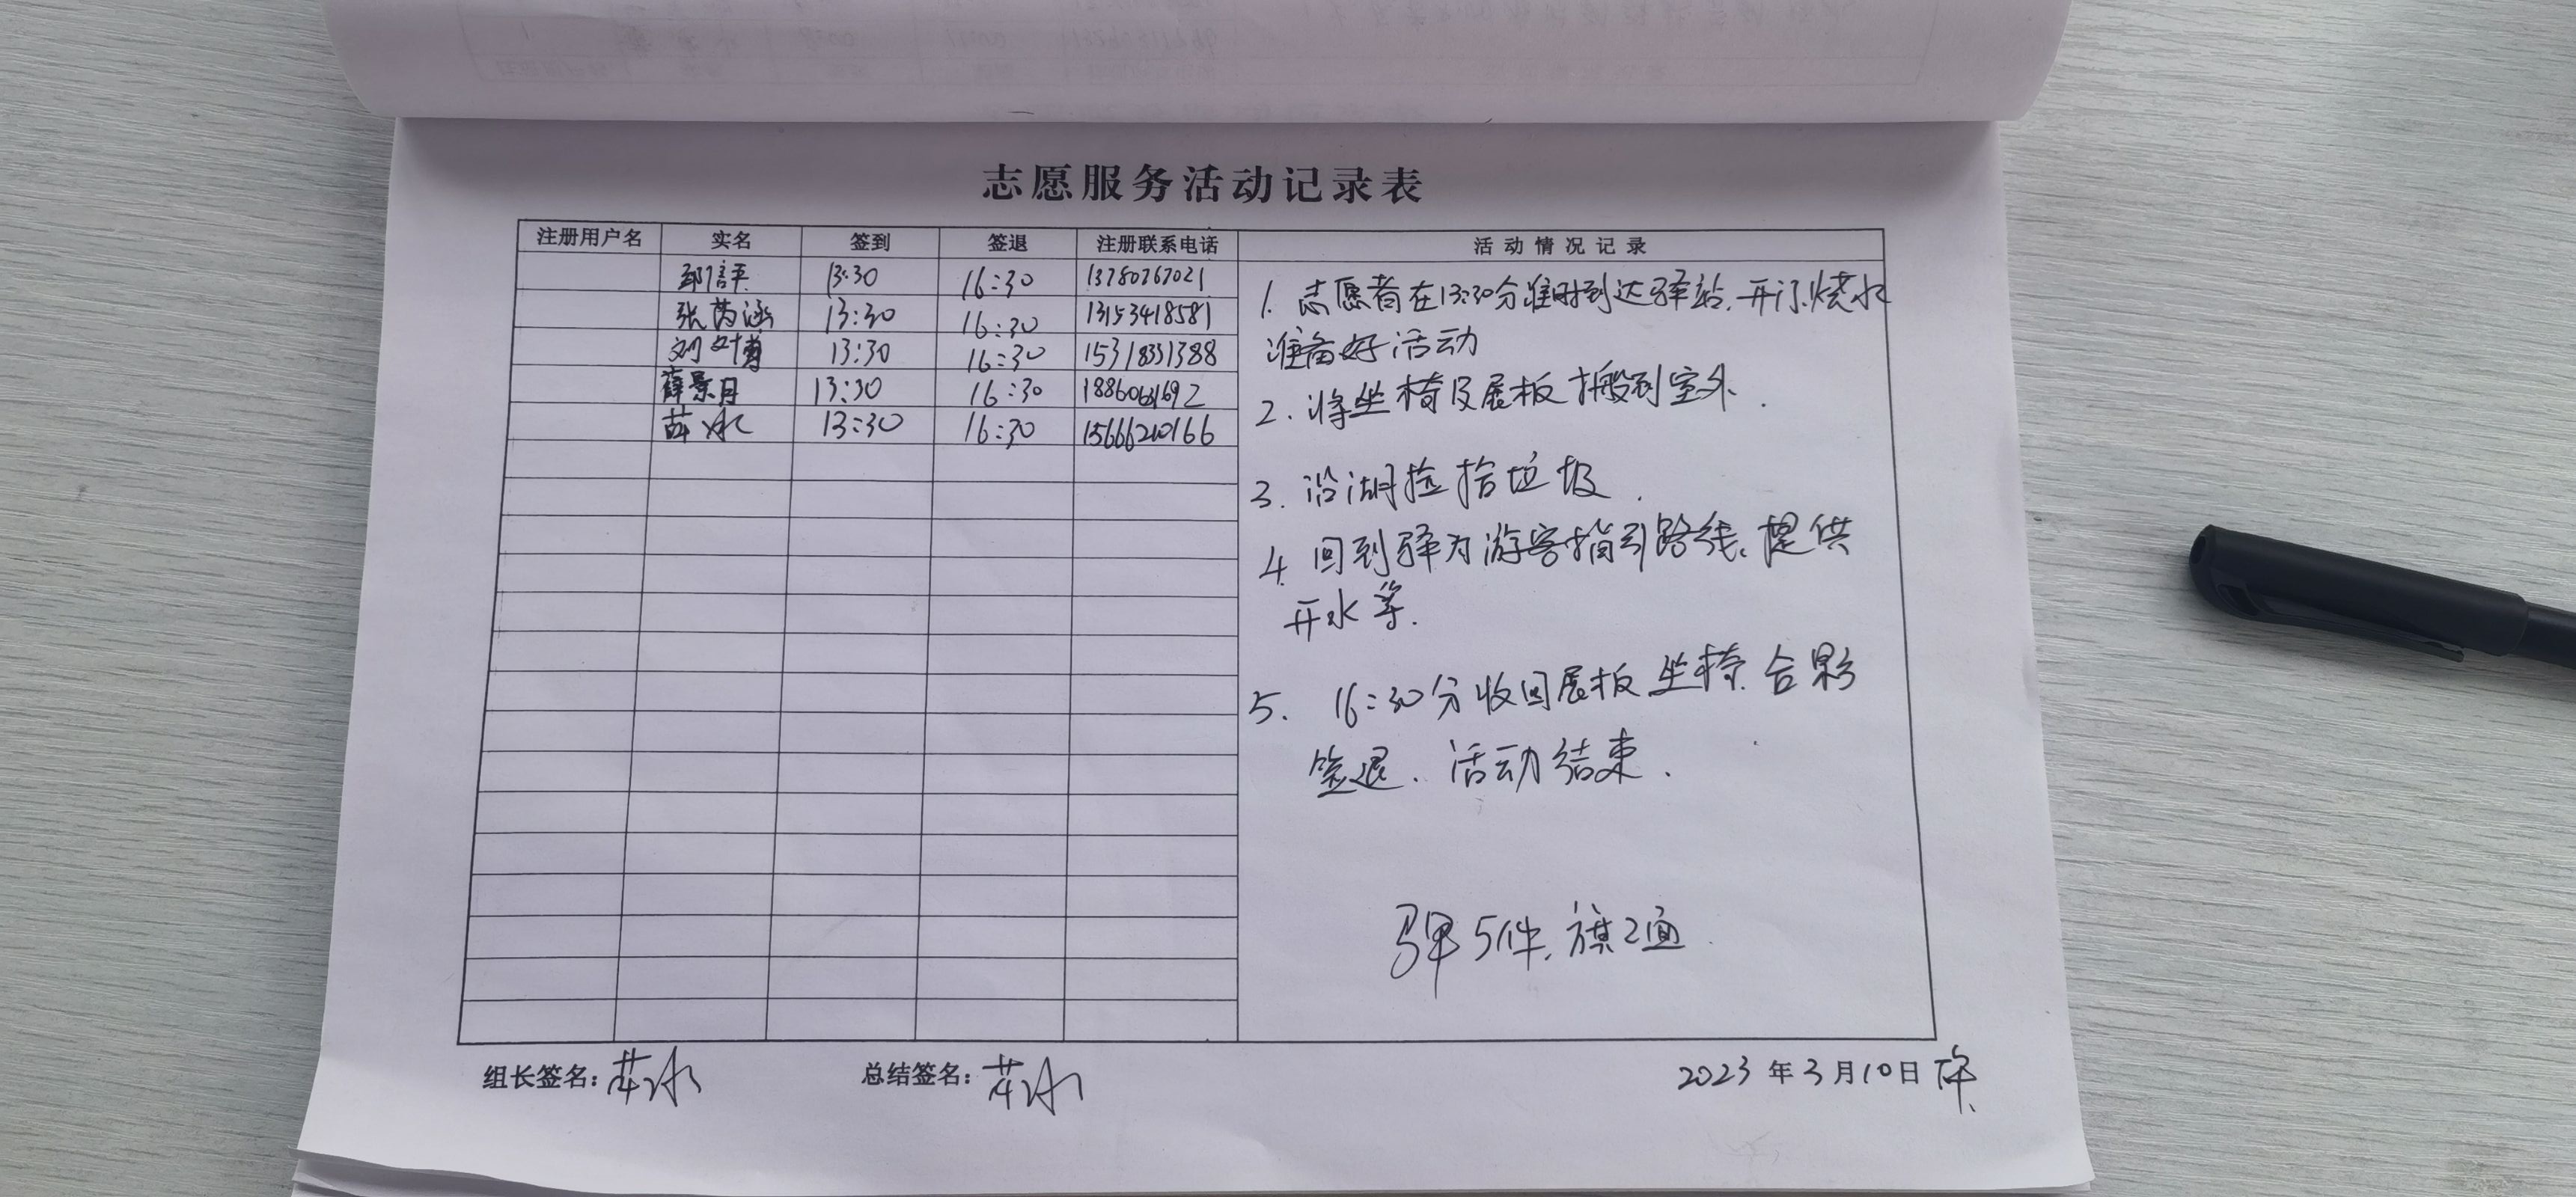 志愿服务活动记录表
注册用户名 实名 签到 签退 注册联系电话 活动情况记录
邹信平 13:30 16:30 13780767021
张芮涵 13:30 16:30 13153418581
刘 13:30 16:30 15318331388
薛景月 13:30 16:30
薛冰 13:30 16:30 15666210166
1. 志愿者在13:30分准时到达驿站.开门.烧水
准备好活动
2. 将坐椅及展板搬到室外.
3. 沿湖捡拾垃圾.
4. 回到驿为游客指引路线.提供
开水等.
5. 16:30分收回展板坐椅.合影
签退.活动结束.
5件.旗2面
组长签名: 薛冰 总结签名: 薛冰 2023年3月10日